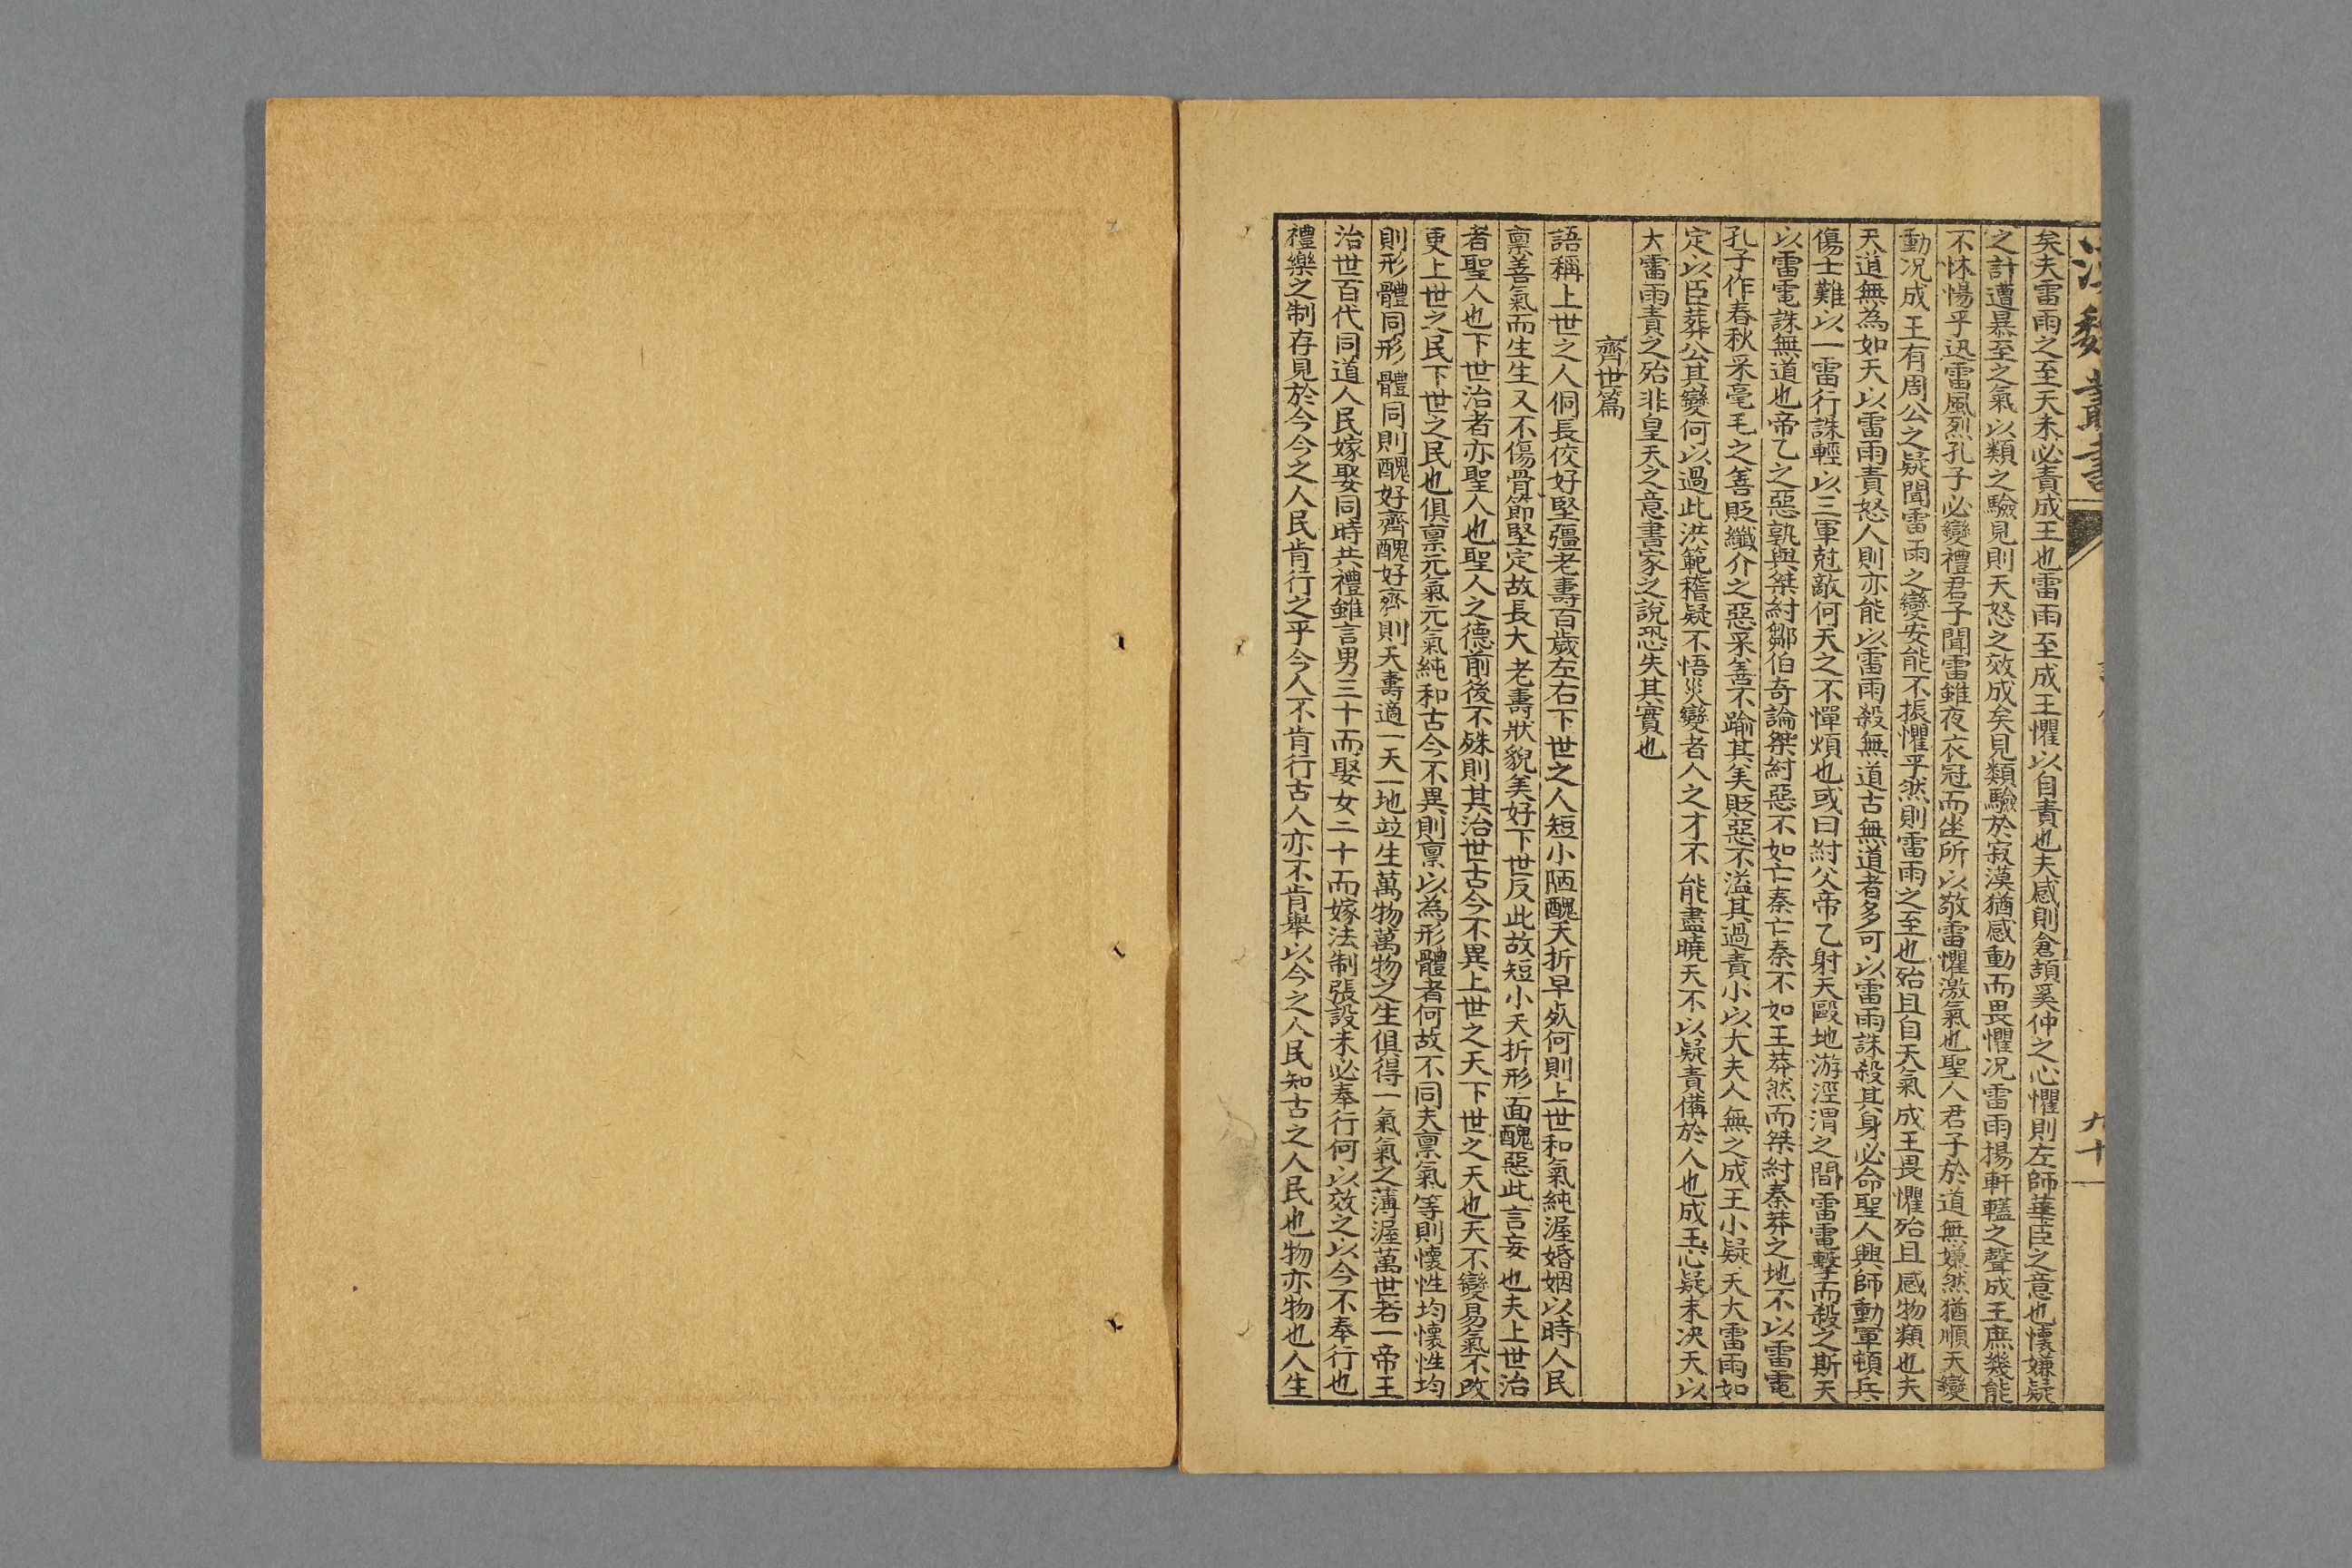 漢魏叢書
九十一
矣夫雷雨之至天未必責成王也雷雨至成王懼以自責也夫感則倉頡奚仲之心懼則左師華臣之意也懷嫌疑
之計遭暴至之氣以類之驗見則天怒之效成矣見類驗於寂漠猶感動而畏懼况雷雨揚軒轠之聲成王庶幾能
不怵惕乎迅雷風烈孔子必變禮君子聞雷雖夜衣冠而坐所以敬雷懼激氣也聖人君子於道無嫌然猶順天變
動况成王有周公之疑聞雷雨之變安能不振懼乎然則雷雨之至也殆且自天氣成王畏懼殆且感物類也夫
天道無為如天以雷雨責怒人則亦能以雷雨殺無道古無道者多可以雷雨誅殺其身必命聖人興師動軍頓兵
傷士難以一雷行誅輕以三軍尅敵何天之不憚煩也或曰紂父帝乙射天毆地游涇渭之間雷電擊而殺之斯天
以雷電誅無道也帝乙之惡孰與桀紂鄒伯奇論桀紂惡不如亡秦亡秦不如王莽然而桀紂秦莽之地不以雷電
孔子作春秋采毫毛之善貶纖介之惡采善不踰其美貶惡不溢其過責小以大夫人無之成王小疑天大雷雨如
定以臣葬公其變何以過此洪範稽疑不悟災變者人之才不能盡曉天不以疑責備於人也成王心疑未决天以
大雷雨責之殆非皇天之意書家之說恐失其實也
齊世篇
語稱上世之人侗長佼好堅彊老壽百歲左右下世之人短小陋醜夭折早死何則上世和氣純渥婚姻以時人民
禀善氣而生生又不傷骨節堅定故長大老壽狀貌美好下世反此故短小夭折形面醜惡此言妄也夫上世治
者聖人也下世治者亦聖人也聖人之德前後不殊則其治世古今不異上世之天下世之天也天不變易氣不改
更上世之民下世之民也俱禀元氣元氣純和古今不異則禀以為形體者何故不同夫禀氣等則懷性均懷性均
則形體同形體同則醜好齊醜好齊則夭壽適一天一地竝生萬物萬物之生俱得一氣氣之薄渥萬世若一帝王
治世百代同道人民嫁娶同時共禮雖言男三十而娶女二十而嫁法制張設未必奉行何以效之以今不奉行也
禮樂之制存見於今今之人民肯行之乎今人不肯行古人亦不肯舉以今之人民知古之人民也物亦物也人生